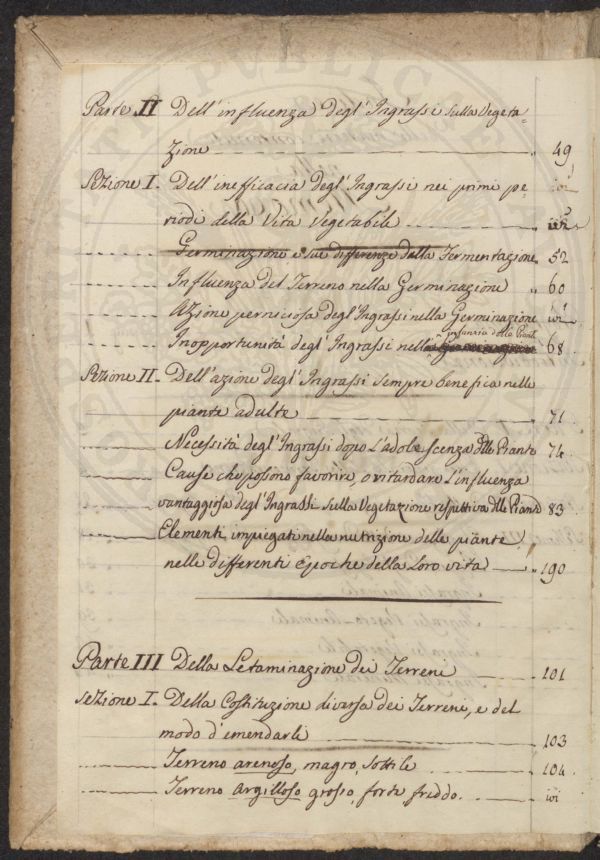 Parte II Dell'influenza degl'Ingrassi sulla Vegeta-
zione 49
Sezione I. Dell'inefficacia degl'Ingrassi nei primi pe-
riodi della Vita Vegetabile ivi
Germinazione e sue differenze dalla Fermentazione 52
Influenza del Terreno nella Germinazione 60
Azione perniciosa degl'Ingrassi nella Germinazione ivi
infanzia delle Piante
Inopportunità degl'Ingrassi nella 68
Sezione II. Dell'azione degl'Ingrassi sempre benefica nelle
piante adulte 71
Necessità degl'Ingrassi dopo l'adolescenza delle Piante 74
Cause che possono favorire, o ritardare l'influenza
vantaggiosa degl'Ingrassi sulla Vegetazione respettiva delle Piante 83
Elementi impiegati nella nutrizione delle piante
nelle differenti epoche della loro vita 190
Parte III Della Letaminazione dei Terreni 101
Sezione I. Della Costituzione diversa dei Terreni, e del
modo d'emendarli 103
Terreno arenoso, magro, sottile 104
Terreno Argilloso grosso, forte, freddo. ivi